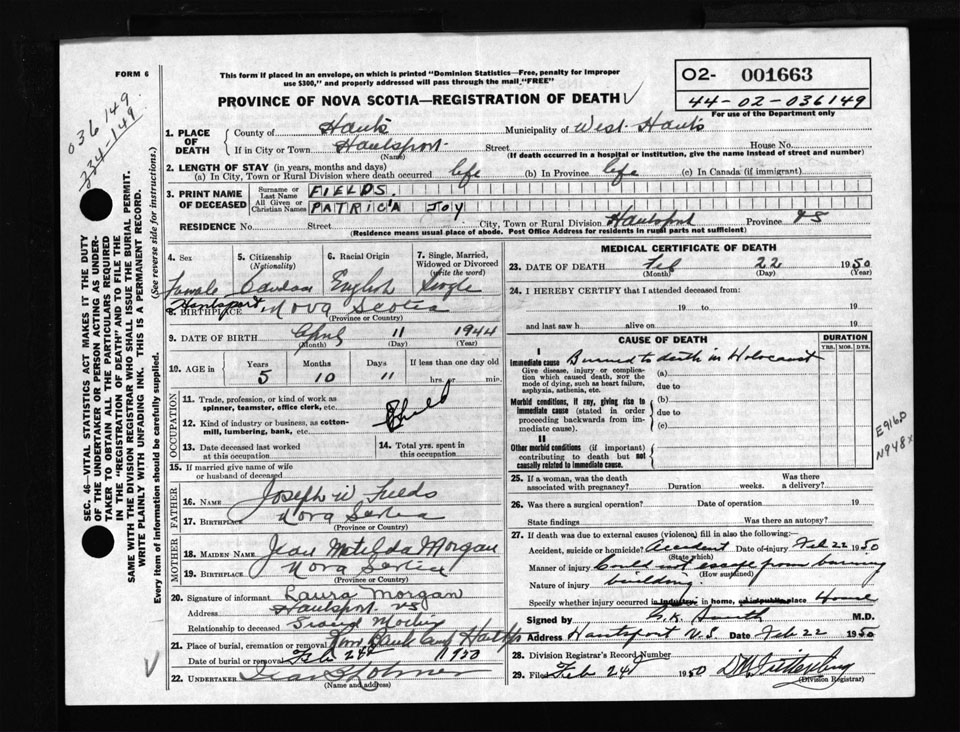 FORM 6
This form if placed in an envelope, on which is printed "Dominion Statistics—Free, penalty for improper
use $300," and properly addressed will pass through the mail "FREE"
O2- 001663
44-02-036149
For use of the Department only
036149
234-149
PROVINCE OF NOVA SCOTIA—REGISTRATION OF DEATH
1. PLACE OF DEATH
County of Hants Municipality of West Hants
If in City or Town Hantsport Street House No.
(Name) (If death occurred in a hospital or institution, give the name instead of street and number)
2. LENGTH OF STAY (in years, months and days)
(a) In City, Town or Rural Division where death occurred life (b) In Province life (c) In Canada (if immigrant)
3. PRINT NAME OF DECEASED
Surname or Last Name FIELDS.
All Given or Christian Names PATRICA JOY
RESIDENCE No. Street City, Town or Rural Division Hantsport Province NS
(Residence means usual place of abode. Post Office Address for residents in rural parts not sufficient)
4. Sex 5. Citizenship (Nationality) 6. Racial Origin 7. Single, Married, Widowed or Divorced (write the word)
Female Canadian English Single
8. BIRTHPLACE Hantsport, Nova Scotia
(Province or Country)
9. DATE OF BIRTH April 11 1944
(Month) (Day) (Year)
10. AGE in Years Months Days If less than one day old
5 10 11 hrs. or min.
OCCUPATION
11. Trade, profession, or kind of work as spinner, teamster, office clerk, etc.
Child
12. Kind of industry or business, as cotton-mill, lumbering, bank, etc.
13. Date deceased last worked at this occupation
14. Total yrs. spent in this occupation
15. If married give name of wife or husband of deceased
FATHER
16. NAME Joseph W Fields
17. BIRTHPLACE Nova Scotia
(Province or Country)
MOTHER
18. MAIDEN NAME Jean Matilda Morgan
19. BIRTHPLACE Nova Scotia
(Province or Country)
20. Signature of informant Laura Morgan
Address Hantsport NS
Relationship to deceased Grand Mother
21. Place of burial, cremation or removal
Date of burial or removal Feb 24 1950
22. UNDERTAKER
(Name and address)
MEDICAL CERTIFICATE OF DEATH
23. DATE OF DEATH Feb 22 1950
(Month) (Day) (Year)
24. I HEREBY CERTIFY that I attended deceased from:
19 to 19
and last saw h alive on 19
CAUSE OF DEATH DURATION
YRS. MOS. DYS.
I
Immediate cause Burned to death in Holocaust
Give disease, injury or complication which caused death, not the mode of dying, such as heart failure, asphyxia, asthenia, etc.
(a)
due to
Morbid conditions, if any, giving rise to immediate cause (stated in order proceeding backwards from immediate cause).
(b)
due to
(c)
II
Other morbid conditions (if important) contributing to death but not causally related to immediate cause.
E916.0
N948x
25. If a woman, was the death associated with pregnancy? Duration weeks. Was there a delivery?
26. Was there a surgical operation? Date of operation 19
State findings Was there an autopsy?
27. If death was due to external causes (violence) fill in also the following:
Accident, suicide or homicide? Accident Date of injury Feb 22 1950
(State which)
Manner of injury Could not escape from burning
(How sustained)
Nature of injury building
Specify whether injury occurred in industry in home, or in public place House
Signed by M.D.
Address Hantsport N.S. Date Feb 22 1950
28. Division Registrar's Record Number
29. Filed Feb 24 1950
(Division Registrar)
SEC. 46—VITAL STATISTICS ACT MAKES IT THE DUTY
OF THE UNDERTAKER OR PERSON ACTING AS UNDERTAKER TO OBTAIN ALL THE PARTICULARS REQUIRED
IN THE "REGISTRATION OF DEATH" AND TO FILE THE
SAME WITH THE DIVISION REGISTRAR WHO SHALL ISSUE THE BURIAL PERMIT.
WRITE PLAINLY WITH UNFADING INK. THIS IS A PERMANENT RECORD.
Every item of information should be carefully supplied. (See reverse side for instructions.)